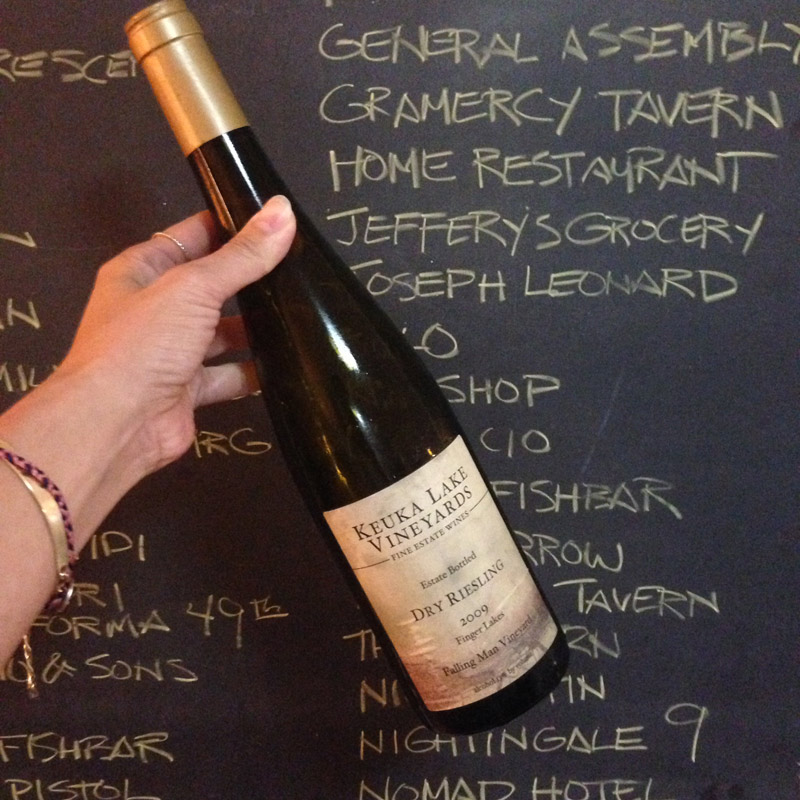 RESCEN
GENERAL ASSEMBLY
GRAMERCY TAVERN
HOME RESTAURANT
JEFFERY'S GROCERY
JOSEPH LEONARD
LO
SHOP
CIO
FISHBAR
RROW
TAVERN
NIGHTINGALE 9
NOMAD HOTEL
RG
IDI
RI
FORMA 49TH
& SONS
FISHBAR
PISTOL
KEUKA LAKE
VINEYARDS
FINE ESTATE WINES
Estate Bottled
DRY RIESLING
2009
Finger Lakes
Falling Man Vineyard